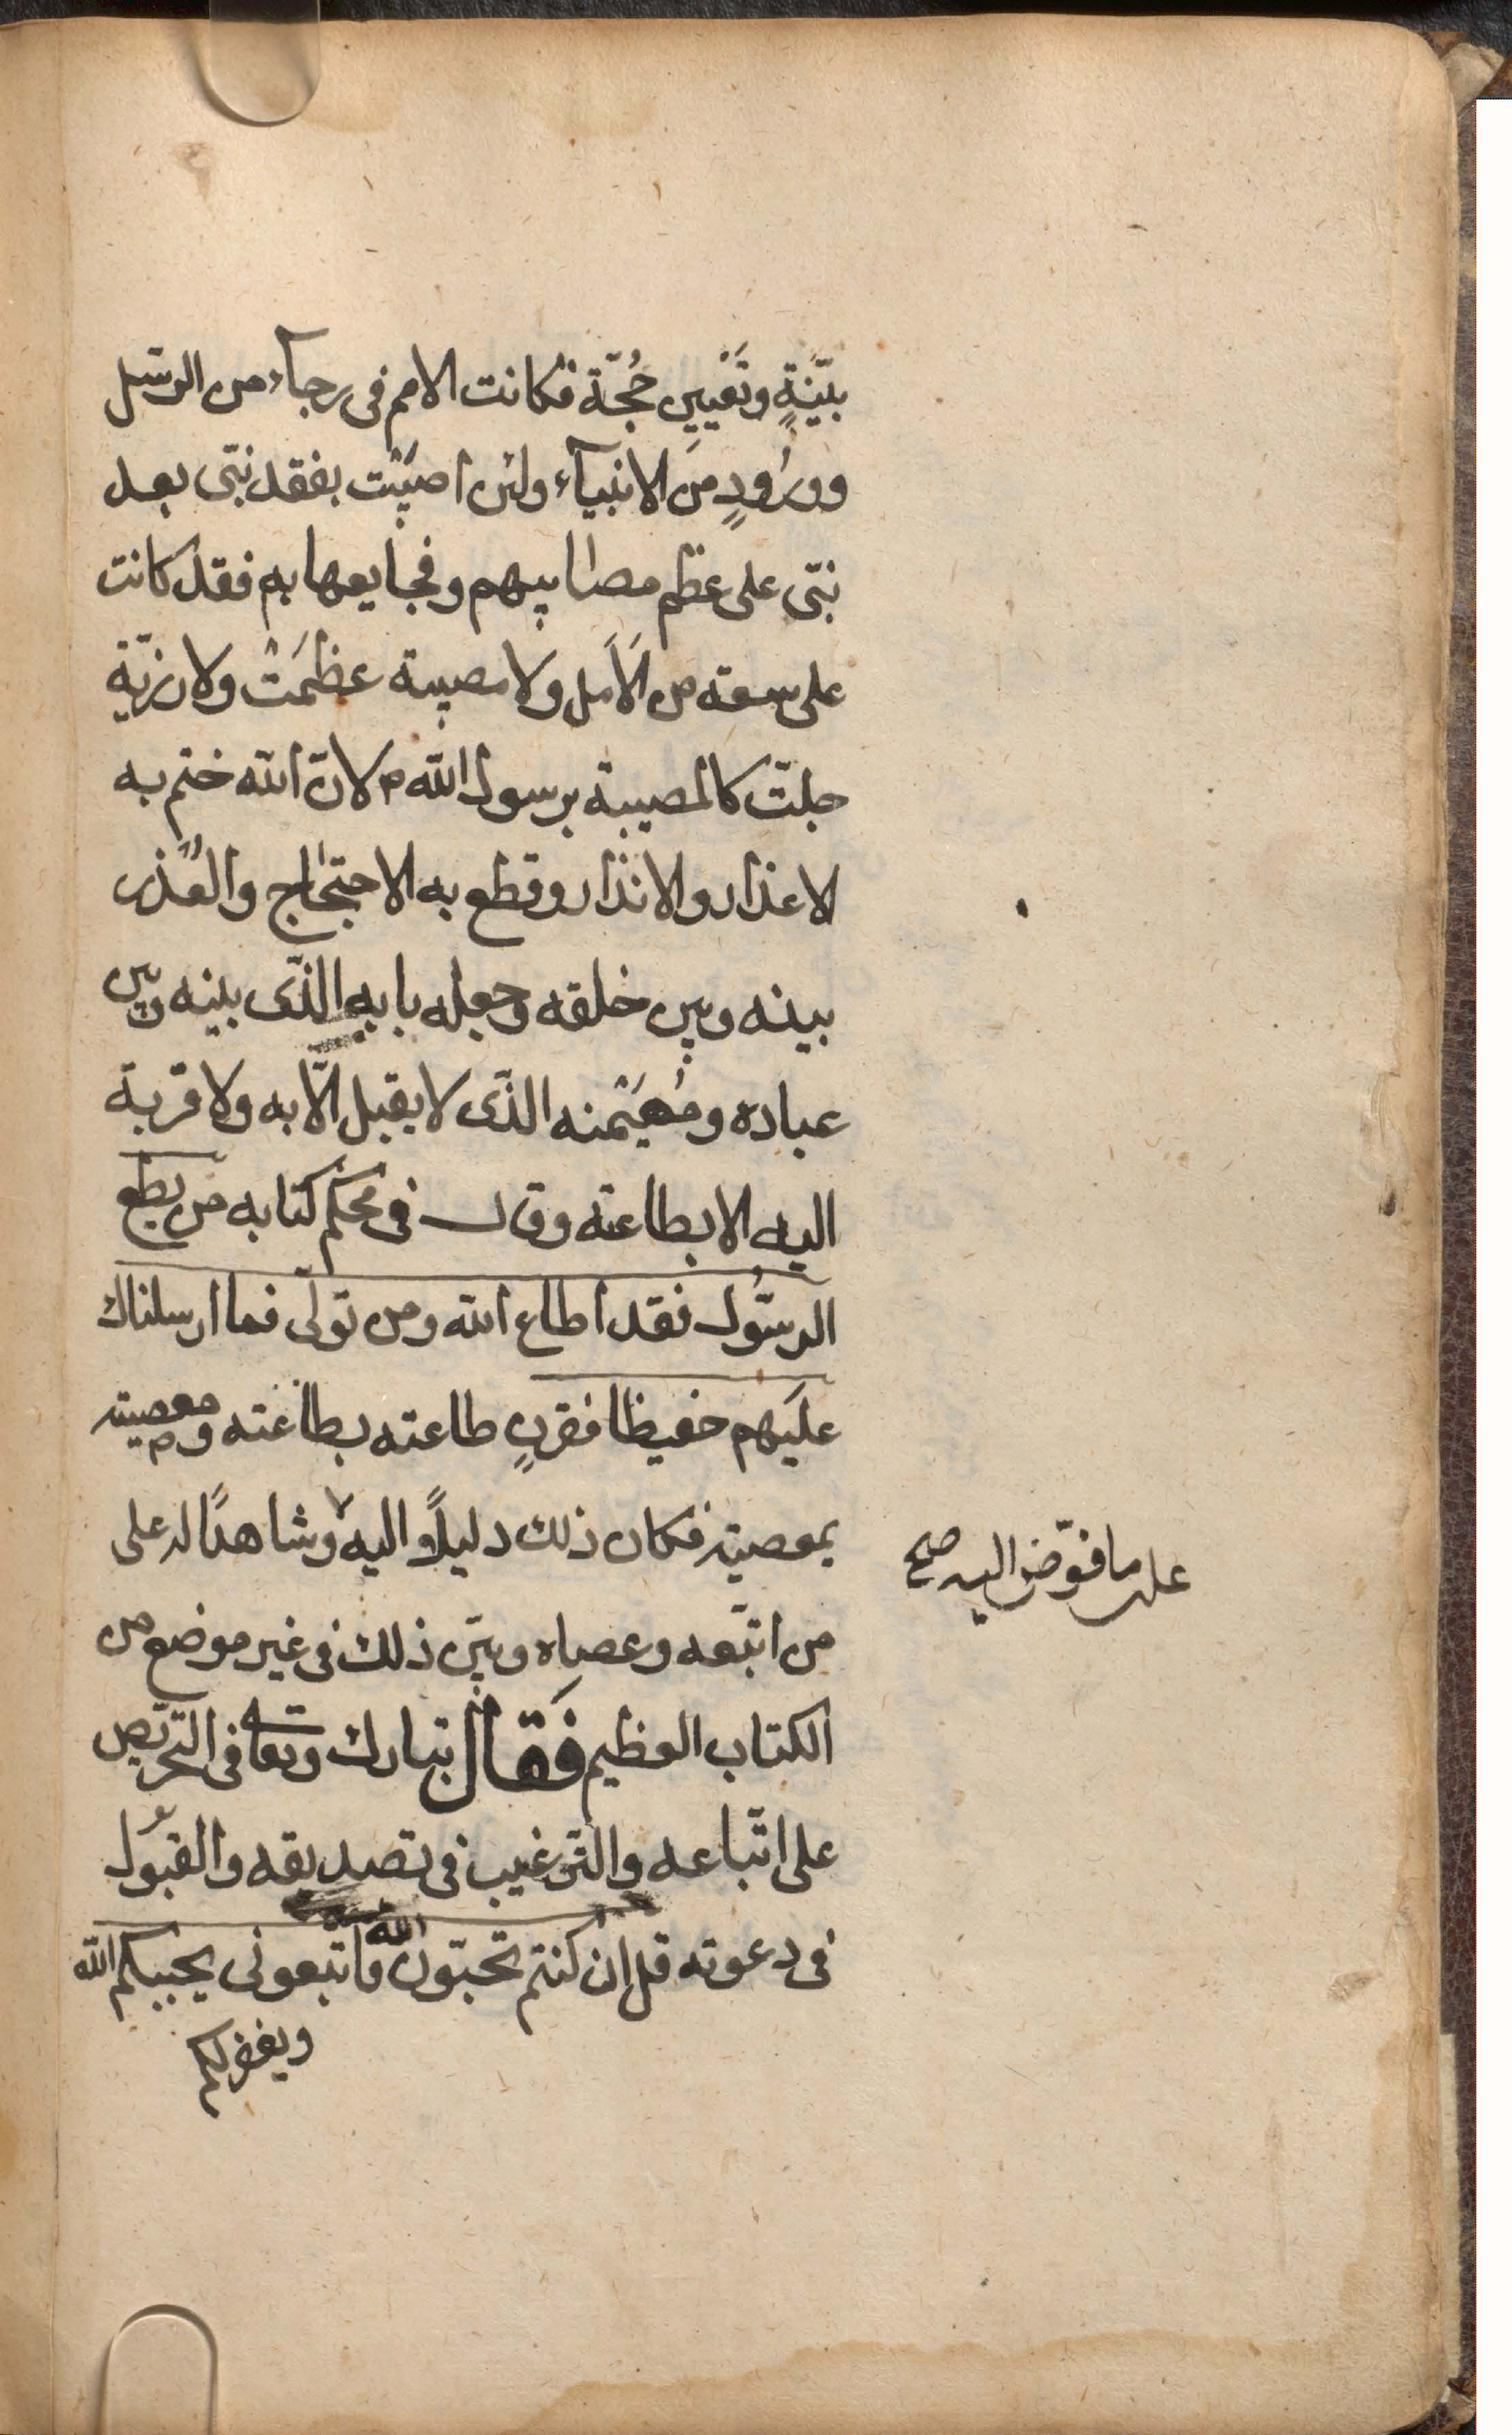 بيّنةٍ وتَعْيين حُجّة فكانت الامم فى رجآء من الرسل
وورُودٍ مِنَ الانبيآء ولئن اصيبَت بفقد نبّى بعد
نبّى على عظم مصايبهم وفجايعها بهم فقد كانت
على سعة من الَامَل ولا مصيبة عظمَتْ ولا رزيّة
جلتّ كالمصيبة برسول الله ص لانّ الله ختم به
الاعذار والانذار وقطع به الاحتجاج والعُذر
بينه وبين خلقه وجعله بابه الذّى بينه وبين
عباده ومُهَيْمنه الذّى لا يقبل الّا به ولا قربة
اليه الا بطاعته وقال فى محكم كتابه من يطع
الرسُّول فقد اطاع الله ومن تولّى فما ارسلناك
عليَهم حفيظا فقرن طاعته بطاعته ومعصيته
بمعصيته فكان ذلك دليلًا واليه وشاهدًا له على
على ما فوّض اليه صح
من اتبّعه وعصاه وبيّن ذلك فى غير موضع من
الكتاب العظيم فَقال تبارك وتعا فى التحريص
على اتّباعه والترغيب فى تصديقه والقبُول
فى دعوته قل ان كنتم تحبّون الله فاتّبعونى يحببكم الله
ويغفر لكم